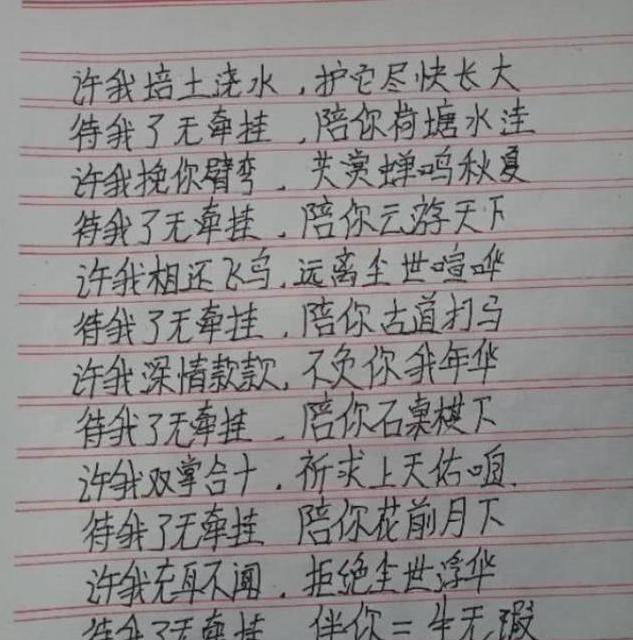 许我培土浇水，护它尽快长大
待我了无牵挂，陪你荷塘水洼
许我挽你臂弯，共赏蝉鸣秋夏
待我了无牵挂，陪你云游天下
许我相还飞鸟，远离尘世喧哗
待我了无牵挂，陪你古道打马
许我深情款款，不负你我年华
待我了无牵挂，陪你石桌棋下
许我双掌合十，祈求上天佑咱
待我了无牵挂 陪你花前月下
许我充耳不闻，拒绝尘世浮华
待我了无牵挂，伴你一生无瑕